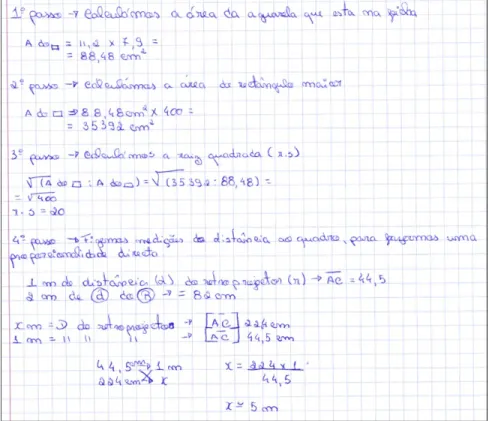 1º passo → Calculámos a área da aguarela que esta na ficha
A do ▭ = 11,2 x 7,9 =
= 88,48 cm²
2º passo → Calculámos a área do rectângulo maior
A do ▭ = 88,48cm² x 400 =
= 35392 cm²
3º passo → Calculámos a raiz quadrada (r.s)
√(A do ▭ : A do ▭) = √(35392 : 88,48) =
= √400
r.s = 20
4º passo → Fizemos medições da distância ao quadro, para fazermos uma
proporcionalidade directa
1 m de distância (d) do retroprojetor (r) → AC = 44,5
2 m de (d) do (R) → = 82cm
x m = D do retroprojector → [AC] 224cm
1 m = " " " → [AC] 44,5 cm
44,5cm → 1 m x = 224 x 1
224cm → x 44,5
x ≃ 5 m